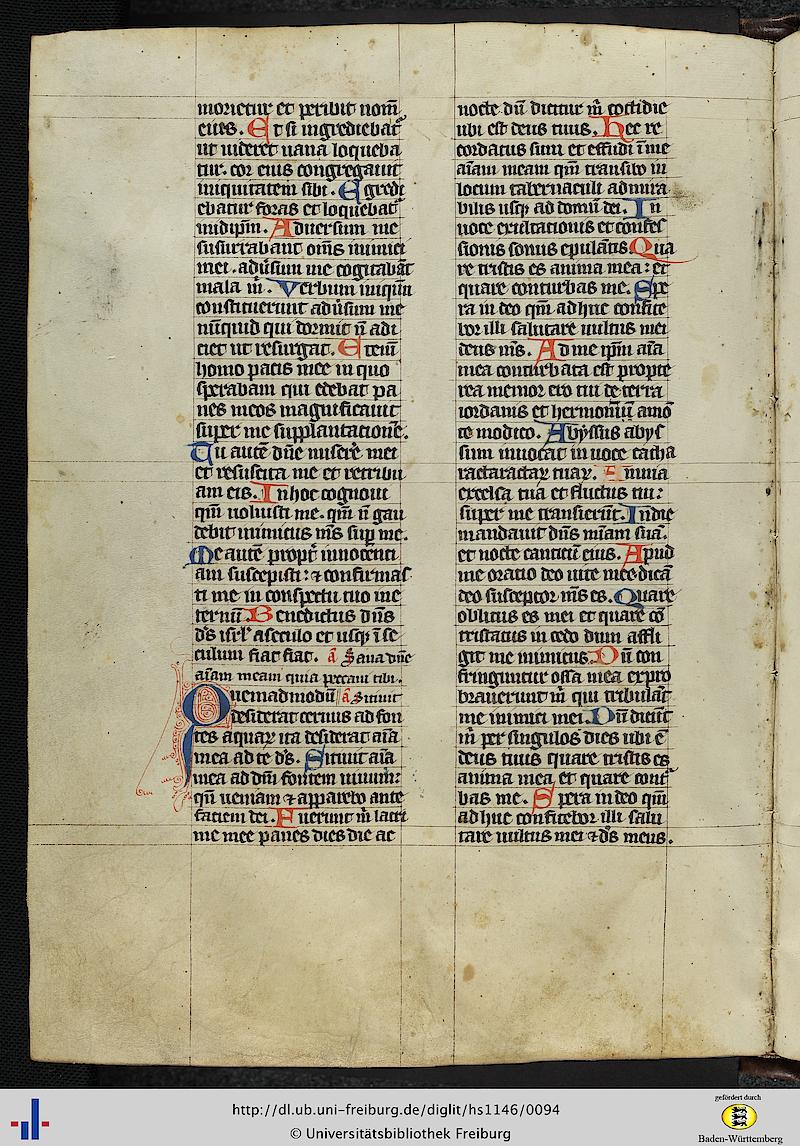 morietur et peribit nom̄
eius. Et si ingrediebat᷑
ut uideret uana loqueba
tur. cor eius congregauit
iniquitatem sibi. Egredi
ebatur foras et loquebat᷑
inidip̄m. Aduersum me
susurrabant om̄s inimici
mei. adūsum me cogitabāt
mala m̄. Verbum iniqūm
constituerunt adūsum me
nūquid qui dormit n̄ adi
ciet ut resurgat. Etenī
homo pacis mee in quo
sperabam qui edebat pa
nes meos magnificauit
super me supplantationē.
Tu autē dn̄e miserē mei
et resuscita me et retribu
am eis. In hoc cognoui
qm̄ uoluisti me. qm̄ n̄ gau
debit inimicus m̄s sup̄ me.
Me autē propt̄ innocenti
am suscepisti: ⁊ confirmas
ti me in conspectu tuo in e
ternū. Benedictus dn̄s
ds̄ isrl̄ a seculo et usqꝫ ī se
culum fiat fiat. a͞ Sana dn̄e
aīam meam quia peccaui tibi.
Quemadmodū a͞ Sitiuit
desiderat ceruus ad fon
tes aquaꝝ ita desiderat aīa
mea ad te ds̄. Sitiuit aīa
mea ad dm̄ fontem uiuum:
qn̄ ueniam ⁊ apparebo ante
faciem dei. Fuerunt m̄ lacri
me mee panes dies die ac
nocte. dū dicitur m̄ cottidie
ubi est deus tuus. Hec re
cordatus sum et effudi ī me
aīam meam qm̄ transibo in
locum tabernaculi admira
bilis usqꝫ ad domū dei. In
uoce exultationis et confes
sionis sonus epulātis. Qua
re tristis es anima mea: et
quare conturbas me. Spe
ra in deo qm̄ adhuc confite
bor illi salutare uultus mei
deus m̄s. Ad me ip̄m aīa
mea conturbata est propte
rea memor ero tui de terra
iordanis et hermoniū a mō
te modico. Abyssus abys
sum inuocat in uoce catha
ractaractaꝝ tuaꝝ. Omnia
excelsa tua et fluctus tui:
super me transierūt. In die
mandauit dn̄s mīam suā.
et nocte canticū eius. Apud
me oratio deo uite mee dicā
deo susceptor m̄s es. Quare
oblitus es mei et quare cō
tristatus incedo dum affli
git me inimicus. Dū con
fringuntur ossa mea expro
brauerunt m̄ qui tribulāt
me inimici mei. Dū dicūt
m̄ per singulos dies ubi ē
deus tuus quare tristis es
anima mea et quare cont᷑
bas me. Spera in deo qm̄
adhuc confitebor illi salu
tare uultus mei ⁊ ds̄ meus.
http://dl.ub.uni-freiburg.de/diglit/hs1146/0094
© Universitätsbibliothek Freiburg
gefördert durch
Baden-Württemberg